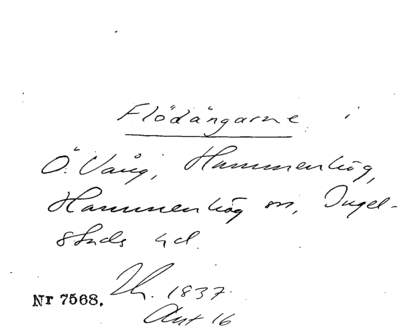 Flödängarne i
Ö. Vång, Hammenhög,
Hammenhög sn, Ingel-
stads hd.
Nr 7568. Th. 1837
Akt 16